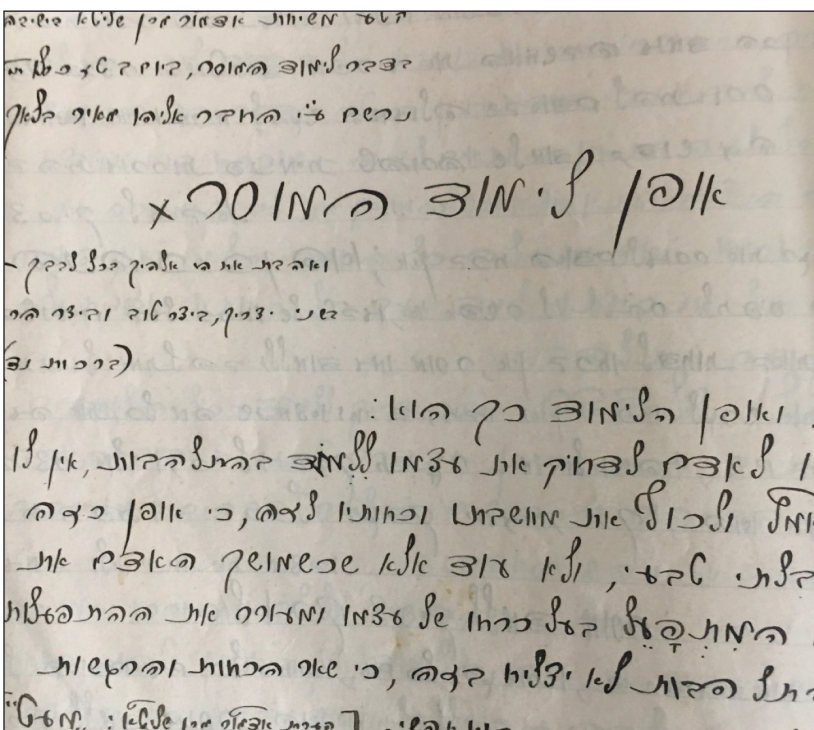 קטע משיחות אדמור מרן שליטא בישיבה
בדבר לימוד המוסר, ביום ב' ט"ז
נרשם ע"י החבר אליהו מאיר בלאך
אופן לימוד המוסר x
ואהבת את ה' אלהיך בכל לבבך -
בשני יצריך, ביצר טוב וביצר הר
(ברכות נד
ואופן הלימוד כך הוא:
לאדם לדחוק את עצמו ללמוד בהתלהבות, אין לו
ולכול את מחשבתו וכחותיו לזה, כי אופן כזה
בלתי טבעי, ולא עוד אלא שכשמושך האדם את
המתפעל בעל כרחו של עצמו ומעורר את ההתפעלות
התלהבות לא יצליח בזה, כי שאר הכחות והרגשות
[הערת אדמור מרן שליטא: